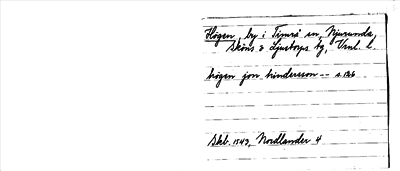 Högen, by i Timrå sn, Njurunda,
Sköns & Ljustorps tg, Vnl. l.
högen jon hindersson -- s. 136
Skb. 1543, Nordlander 4